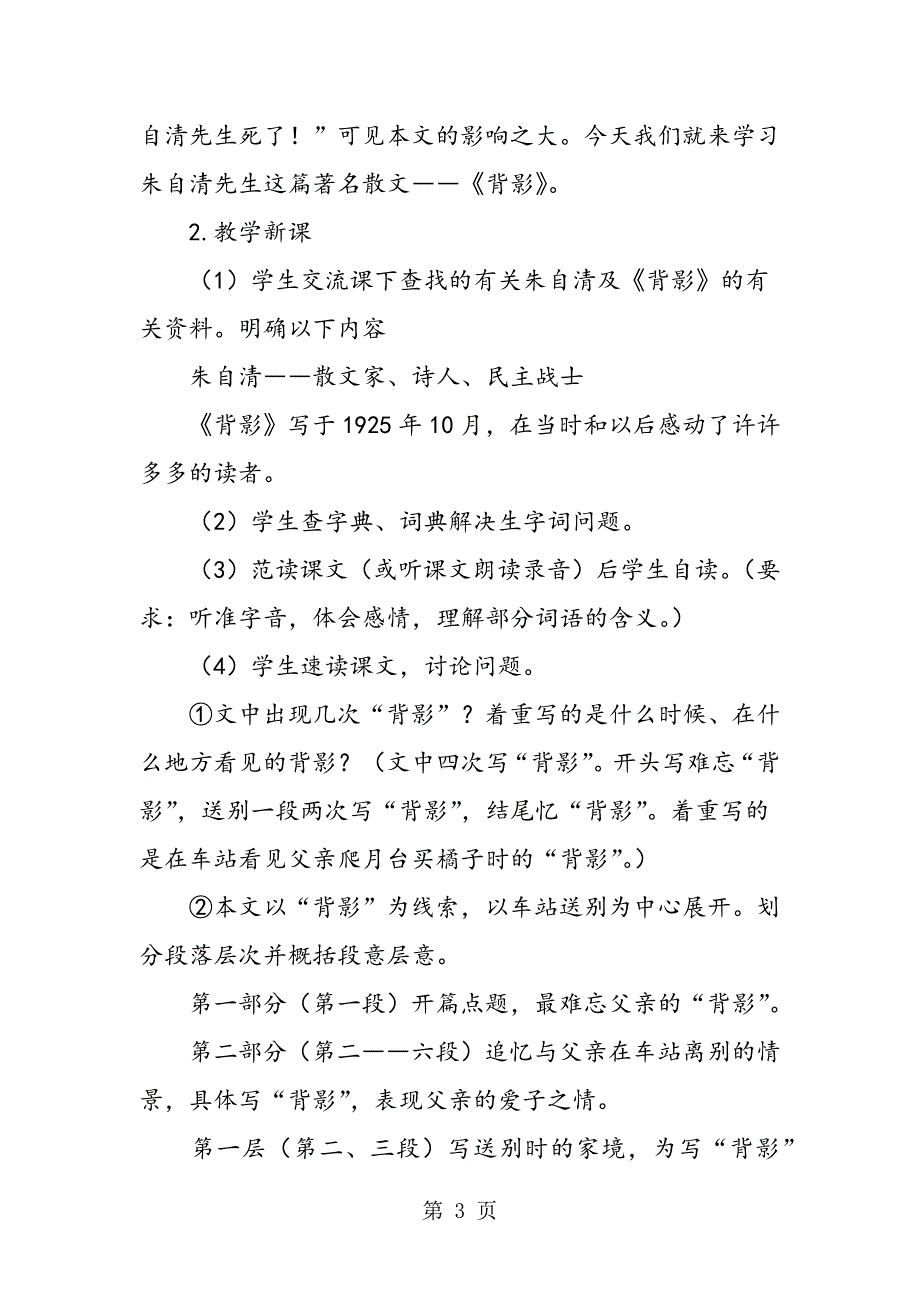 自清先生死了！”可见本文的影响之大。今天我们就来学习
朱自清先生这篇著名散文——《背影》。
2.教学新课
（1）学生交流课下查找的有关朱自清及《背影》的有
关资料。明确以下内容
朱自清——散文家、诗人、民主战士
《背影》写于1925年10月，在当时和以后感动了许许
多多的读者。
（2）学生查字典、词典解决生字词问题。
（3）范读课文（或听课文朗读录音）后学生自读。（要
求：听准字音，体会感情，理解部分词语的含义。）
（4）学生速读课文，讨论问题。
①文中出现几次“背影”？着重写的是什么时候、在什
么地方看见的背影？（文中四次写“背影”。开头写难忘“背
影”，送别一段两次写“背影”，结尾忆“背影”。着重写的
是在车站看见父亲爬月台买橘子时的“背影”。）
②本文以“背影”为线索，以车站送别为中心展开。划
分段落层次并概括段意层意。
第一部分（第一段）开篇点题，最难忘父亲的“背影”。
第二部分（第二——六段）追忆与父亲在车站离别的情
景，具体写“背影”，表现父亲的爱子之情。
第一层（第二、三段）写送别时的家境，为写“背影”
第 3 页